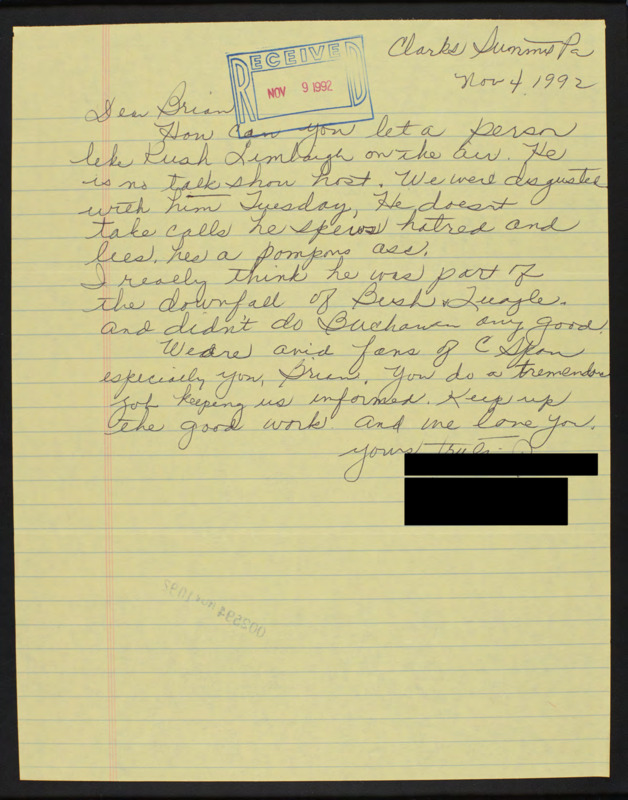 Clarks Summit Pa
RECEIVED
NOV 9 1992
Nov 4, 1992
Dear Brian
How can you let a person
like Rush Limbaugh on the air. He
is no talk show host. We were disgusted
with him Tuesday, He doesnt
take calls he spews hatred and
lies. hes a pompous ass.
I really think he was part of
the downfall of Bush &
and didn't do Buchanan any good.
We are avid fans of C Span
especially you, Brian. You do a tremendous
job keeping us informed. Keep up
the good work and we love you.
yours truly
002594